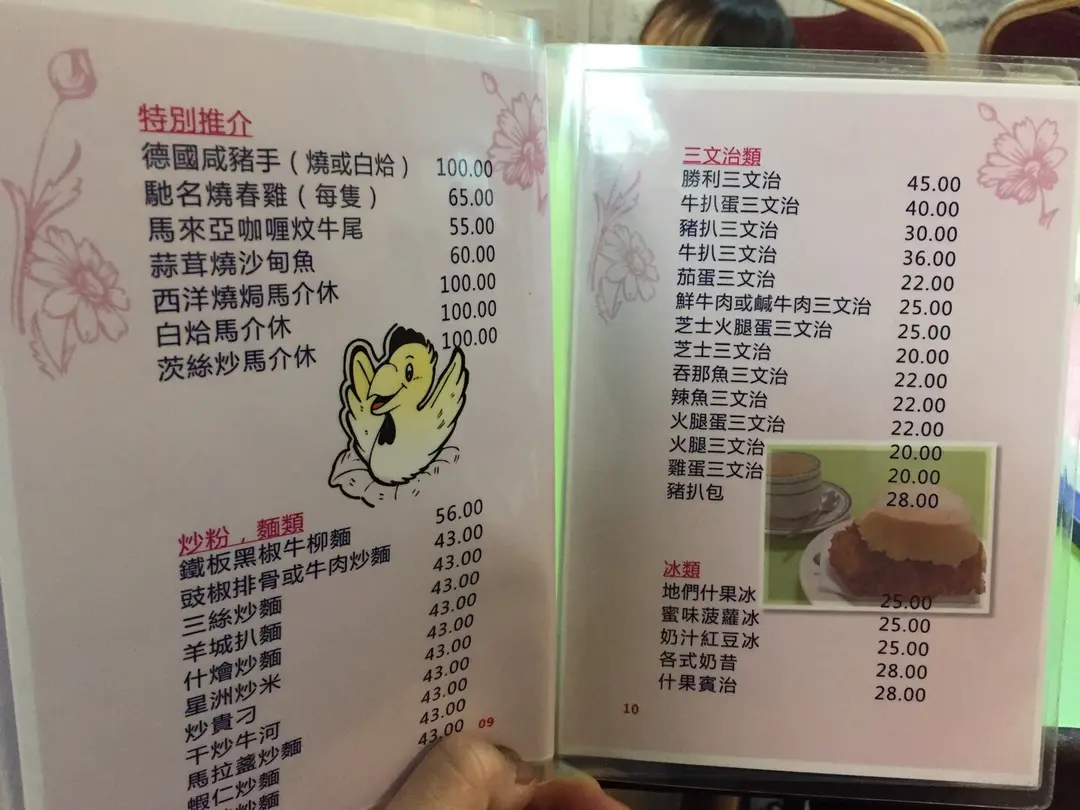 特別推介
德國咸豬手（燒或白烚） 100.00
馳名燒春雞（每隻） 65.00
馬來亞咖喱炆牛尾 55.00
蒜茸燒沙甸魚 60.00
西洋燒焗馬介休 100.00
白烚馬介休 100.00
茨絲炒馬介休 100.00
炒粉，麵類
鐵板黑椒牛柳麵 56.00
豉椒排骨或牛肉炒麵 43.00
三絲炒麵 43.00
羊城扒麵 43.00
什燴炒麵 43.00
星洲炒米 43.00
炒貴刁 43.00
干炒牛河 43.00
馬拉盞炒麵 43.00
蝦仁炒麵 43.00
炒麵
09
三文治類
勝利三文治 45.00
牛扒蛋三文治 40.00
豬扒三文治 30.00
牛扒三文治 36.00
茄蛋三文治 22.00
鮮牛肉或鹹牛肉三文治 25.00
芝士火腿蛋三文治 25.00
芝士三文治 20.00
吞那魚三文治 22.00
辣魚三文治 22.00
火腿蛋三文治 22.00
火腿三文治 20.00
雞蛋三文治 20.00
豬扒包 28.00
冰類
地們什果冰 25.00
蜜味菠蘿冰 25.00
奶汁紅豆冰 25.00
各式奶昔 28.00
什果賓治 28.00
10